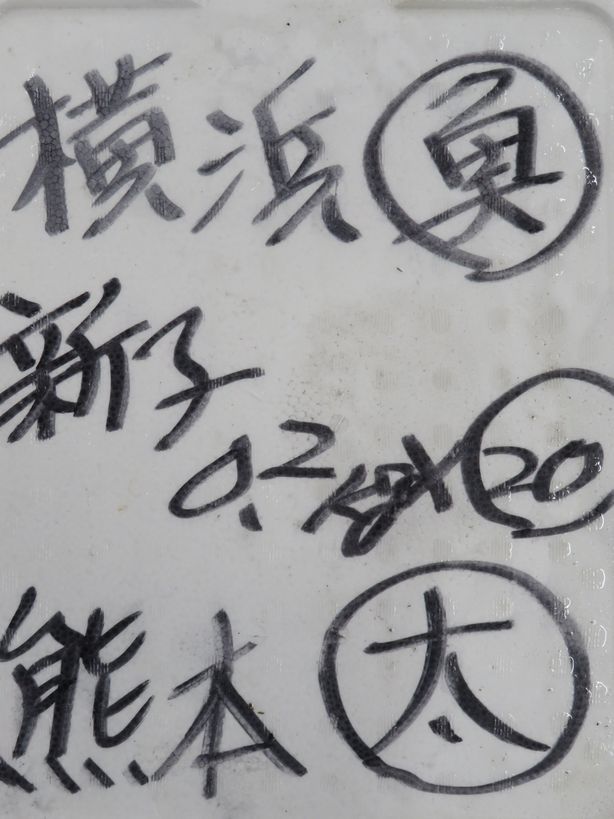 横浜 魚
新子
0.2kg×20
熊本 太